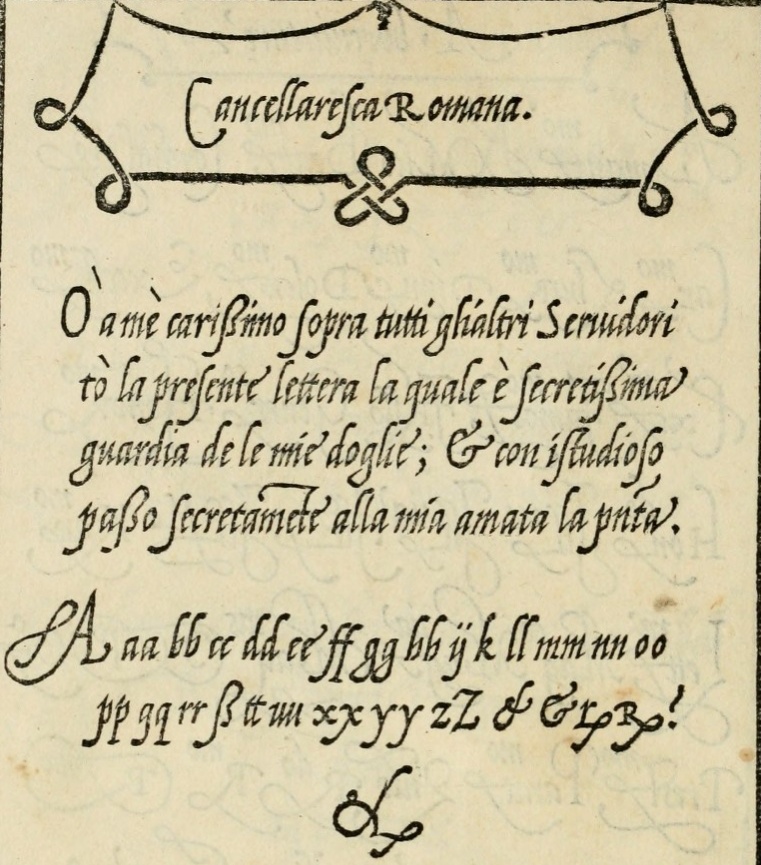 Cancellaresca Romana.
O' a mè carißimo sopra tutti glialtri Seruidori
tò la presente lettera la quale è secretißima
guardia de le mie doglie; & con istudioso
paßo secretam̄ete alla mia amata la pn̄ta.
A aa bb cc dd ee ff gg hh ij k ll mm nn oo
pp qq rr ß tt uu xx yy zZ & &